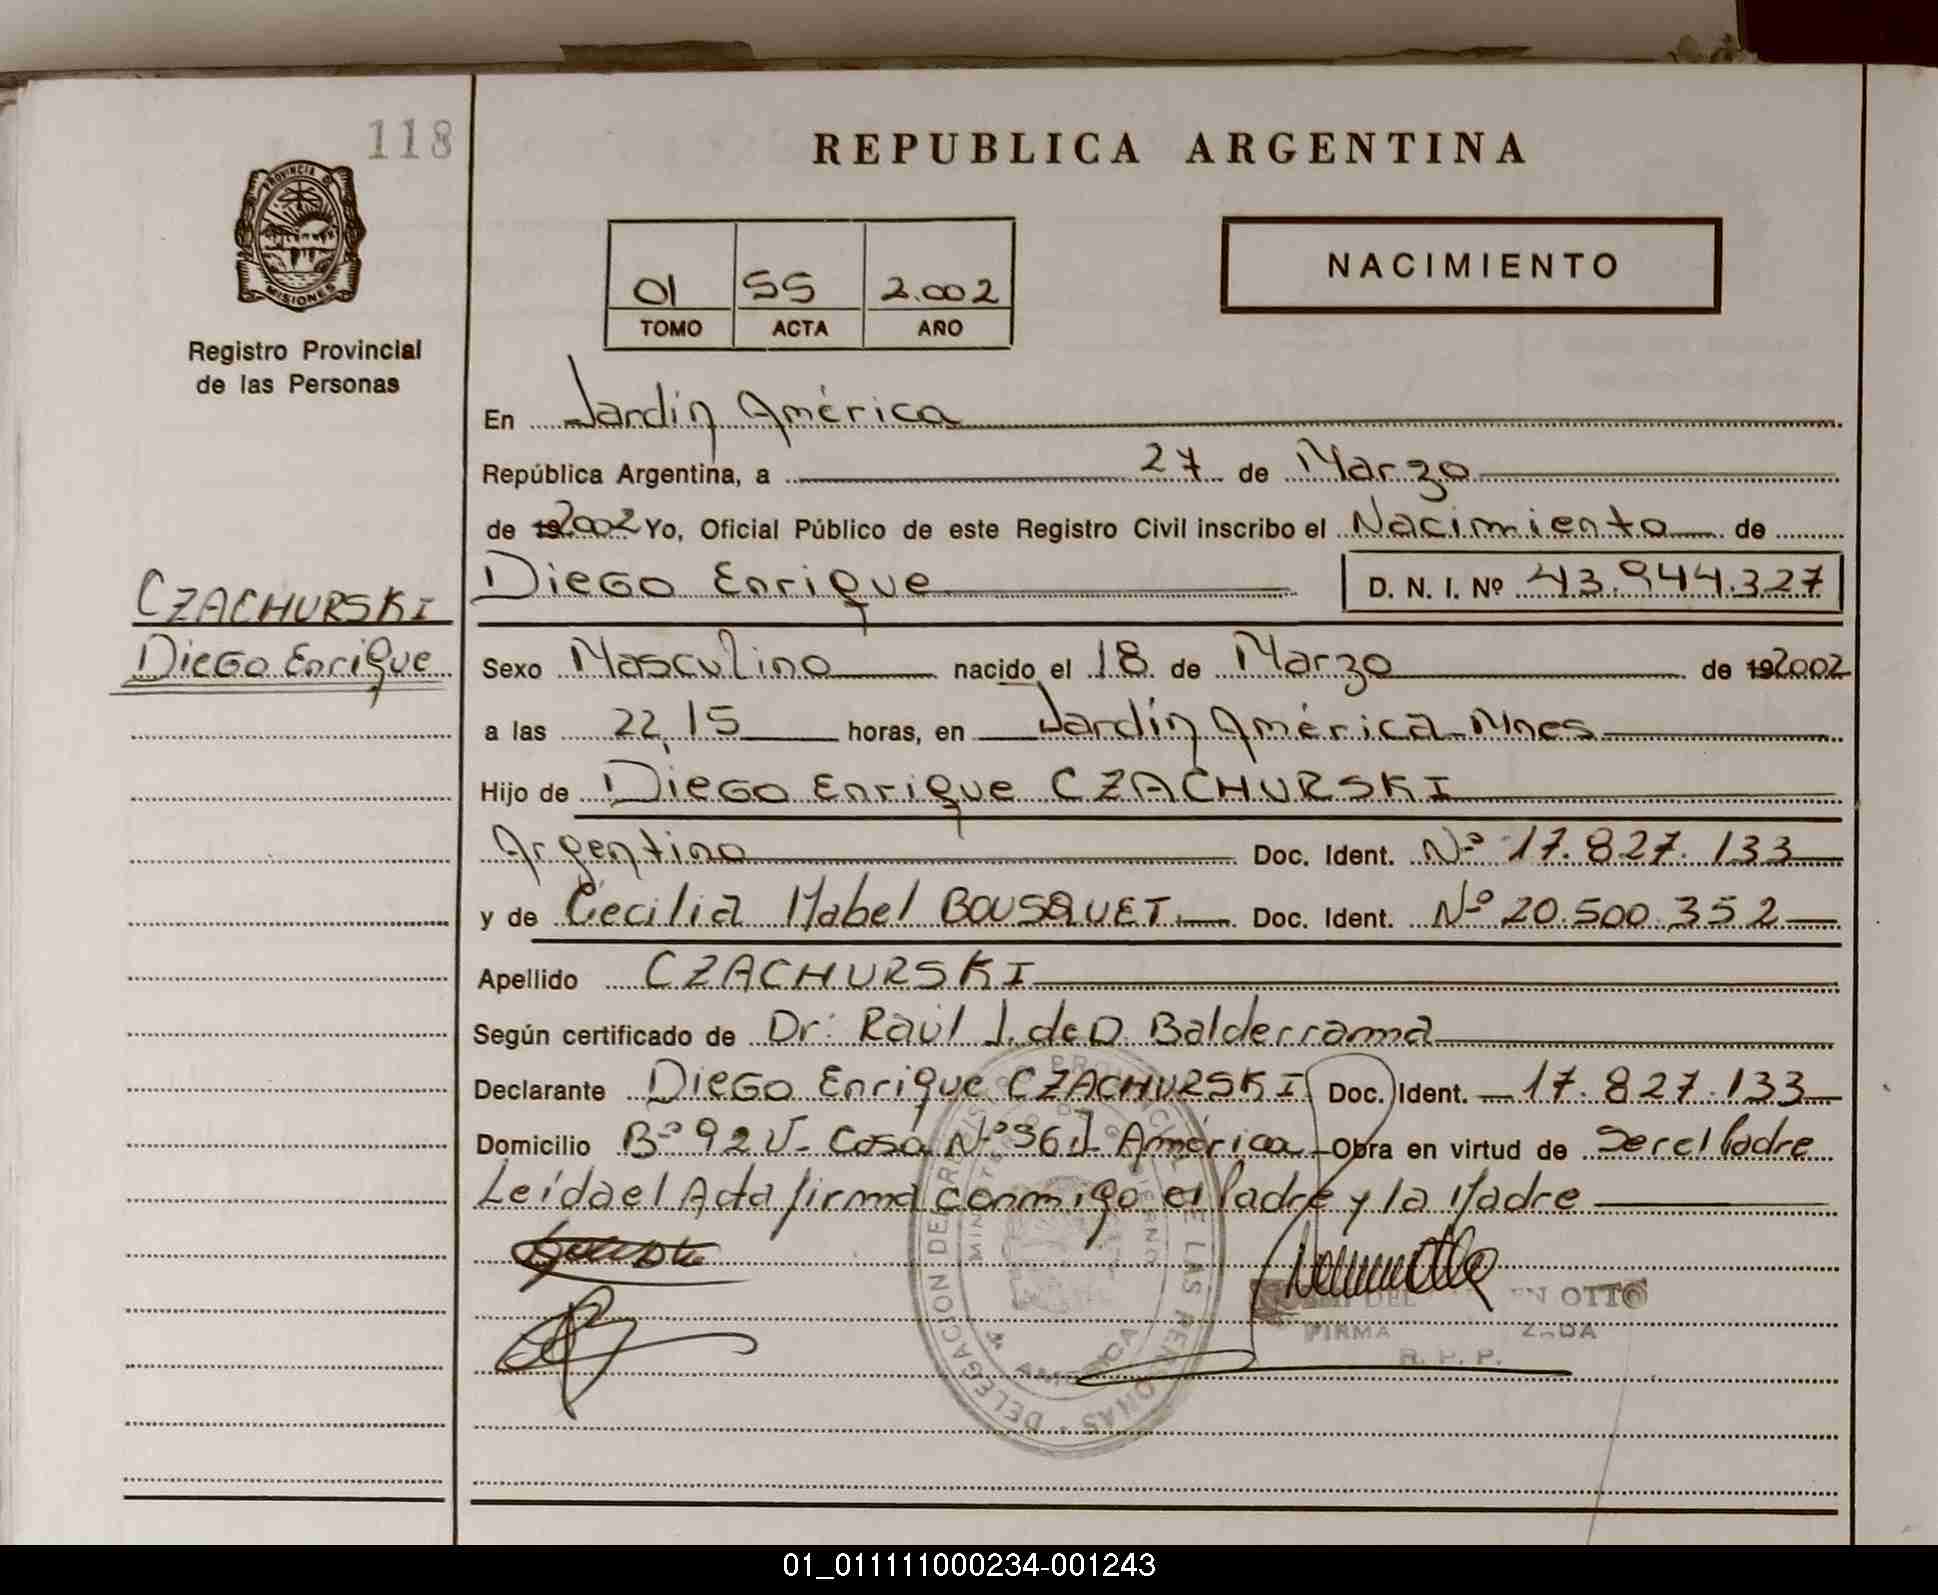 118
REPUBLICA ARGENTINA
PROVINCIA DE
MISIONES
Registro Provincial
de las Personas
NACIMIENTO
01 55 2.002
TOMO ACTA AÑO
En Jardín América
República Argentina, a 27 de Marzo
de 192002 Yo, Oficial Público de este Registro Civil inscribo el Nacimiento de
Diego Enrique D. N. I. Nº 43.944.327
CZACHURSKI
Diego Enrique
Sexo Masculino nacido el 18 de Marzo de 192002
a las 22,15 horas, en Jardín América - Mnes
Hijo de Diego Enrique CZACHURSKI
Argentino Doc. Ident. Nº 17.827.133
y de Cecilia Mabel BOUSQUET Doc. Ident. Nº 20.500.352
Apellido CZACHURSKI
Según certificado de Dr: Raúl J. de D. Balderrama
Declarante Diego Enrique CZACHURSKI Doc. Ident. 17.827.133
Domicilio Bº 92 V- Casa Nº 36 J. América - Obra en virtud de Ser el Padre
Leída el Acta firma conmigo el Padre y la Madre
DELEGACION DE REGISTRO PROVINCIAL DE LAS PERSONAS
MINISTERIO DE GOBIERNO
AMERICA
DEL OTTO
FIRMA
R. P. P.
01_011111000234-001243